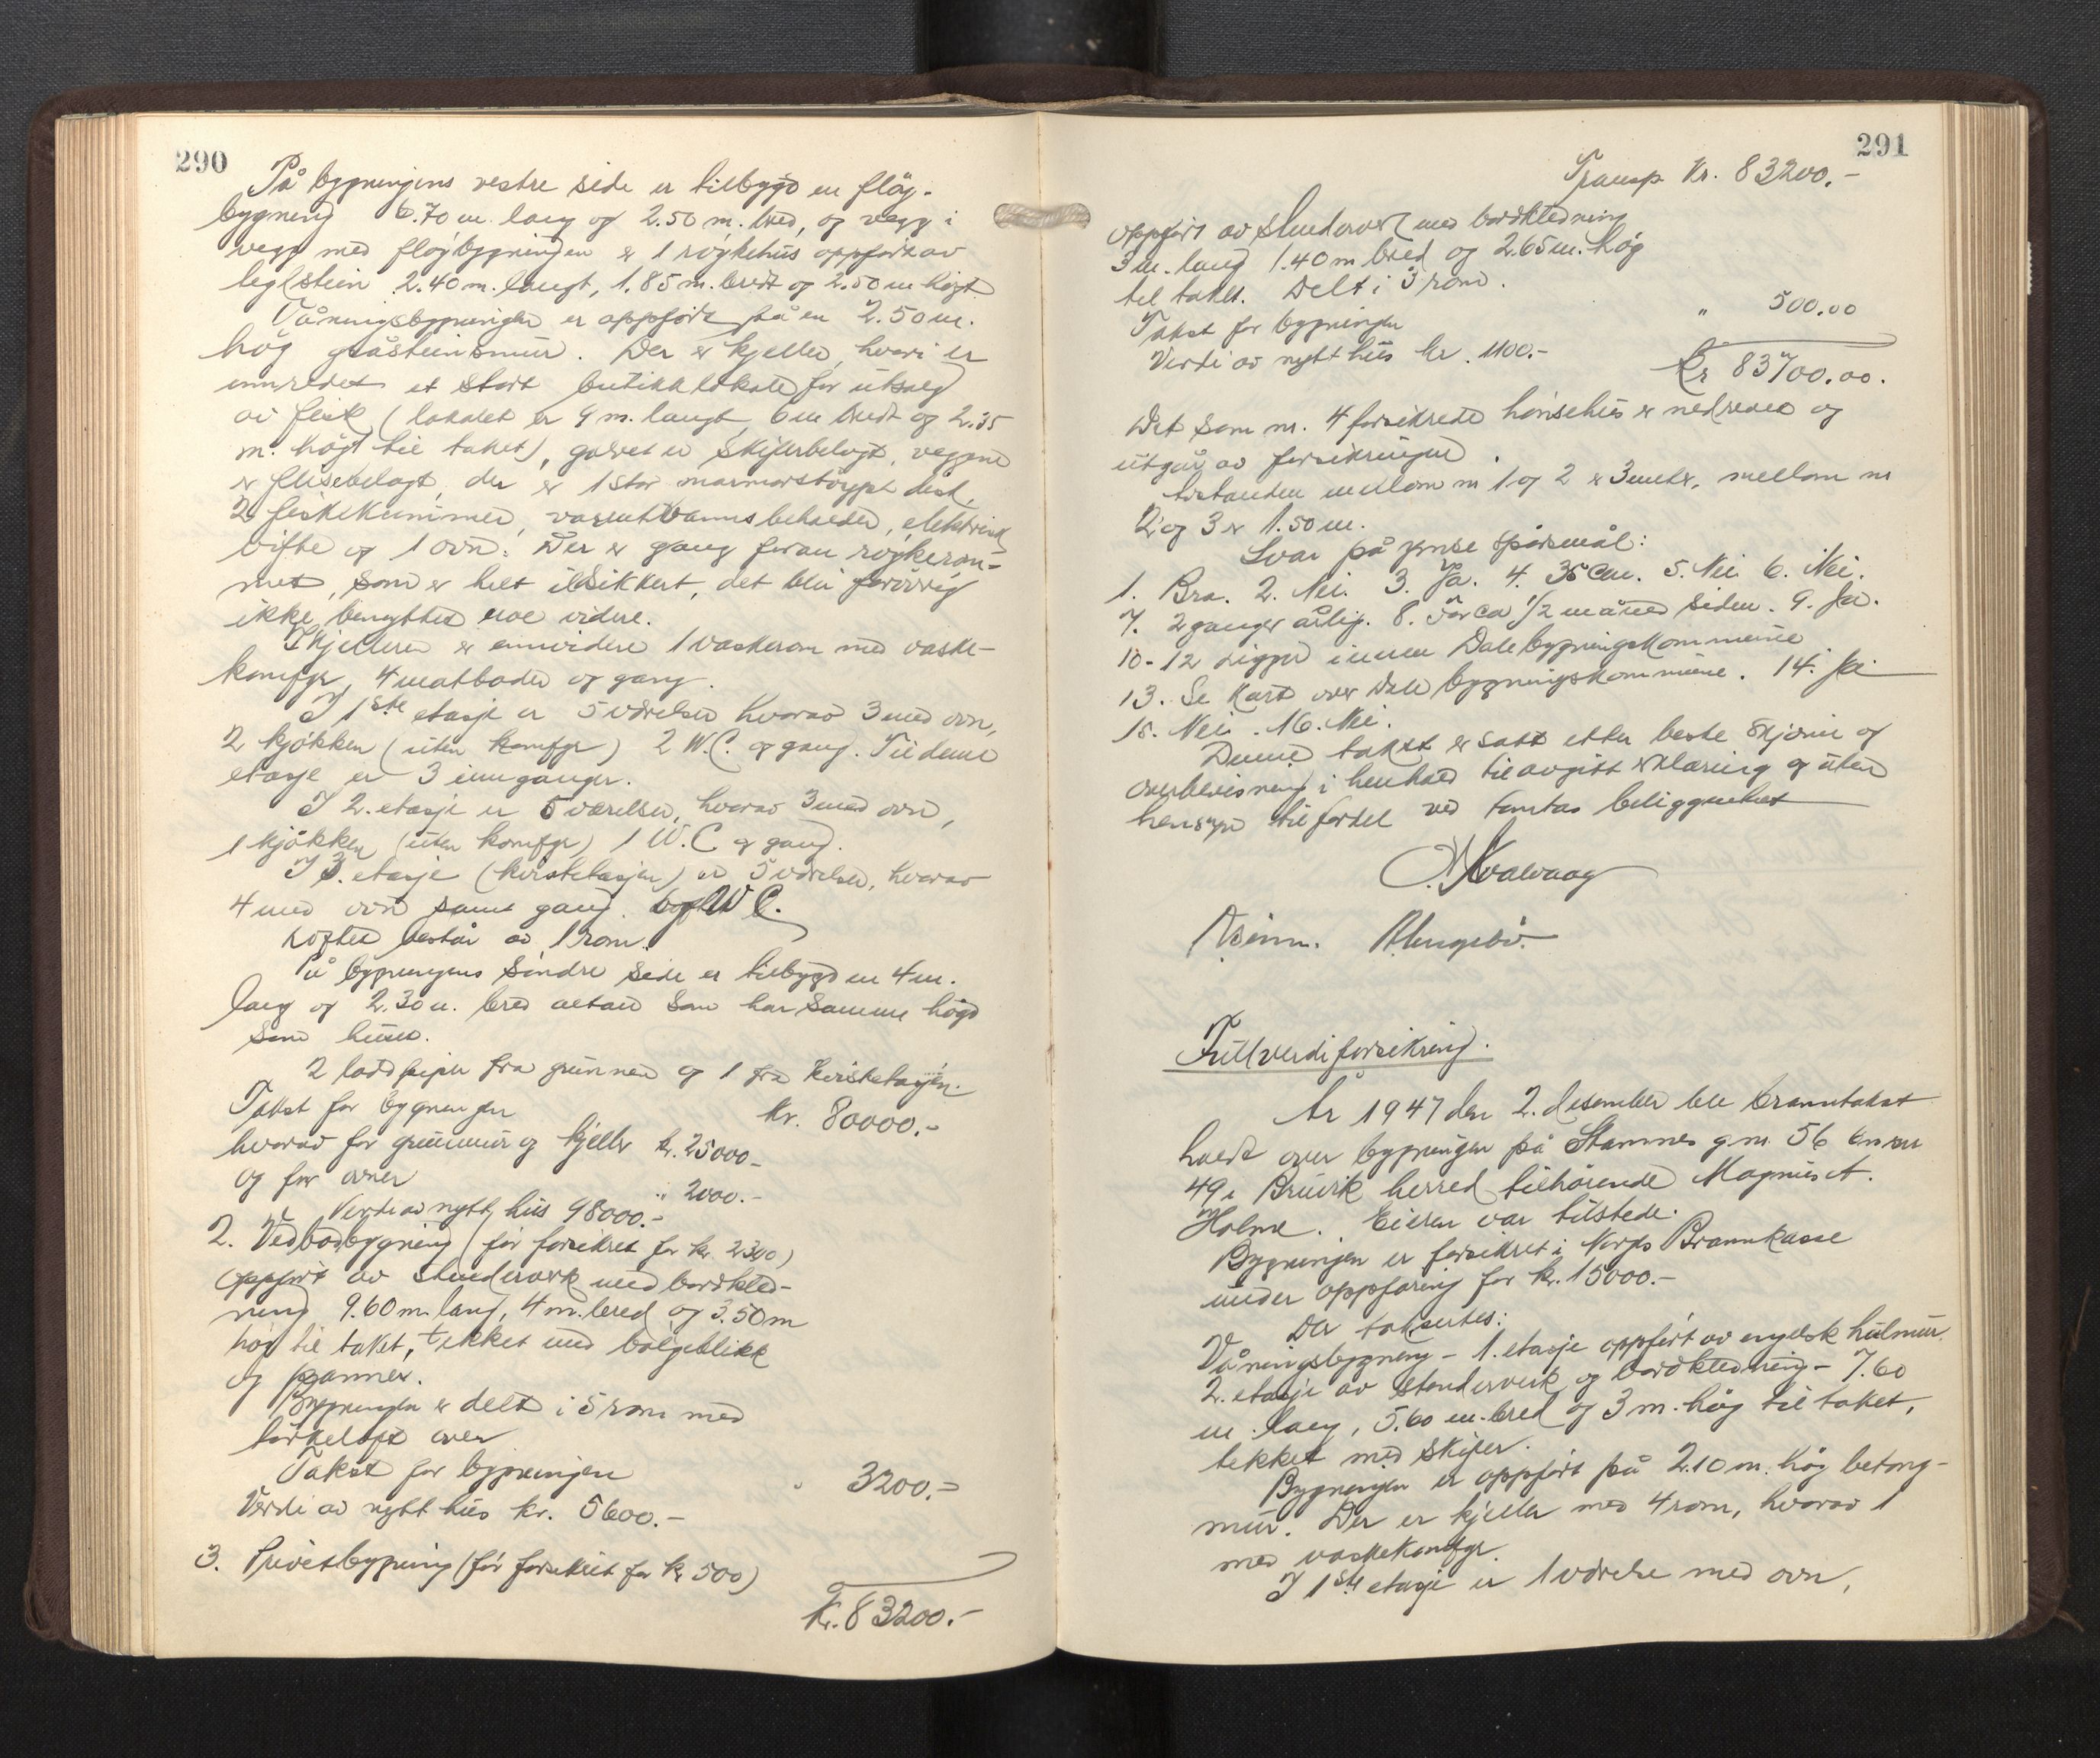 290
På bygningens vestre side er tilbygd en fløy-
bygning 6.70 m. lang og 2.50 m. bred, og vegg i
vegg med fløybygningen er 1 røykehus oppført av
teglstein 2.40 m. langt, 1.85 m. bredt og 2.50 m høgt.
Våningsbygningen er oppført på en 2.50 m.
høg gråsteinsmur. Der er kjeller, hvori er
innredet et stort butikklokale for utsalg
av fisk (lokalet er 9 m. langt, 6 m bredt og 2.35
m. høgt til taket), golvet er skiferbelagt, veggene
er flisebelagt, der er 1 stor marmorstøypt disk,
2 fiskekummer, varmtvannsbeholder, elektrisk
vifte og 1 ovn. Der er gang foran røykerom-
met, som er helt ildsikkert, det blir forøvrig
ikke benyttet noe videre.
I kjelleren er ennvidere 1 vaskerom med vaske-
komfyr, 4 matboder og gang.
I 1ste etasje er 5 værelser hvorav 3 med ovn,
2 kjøkken (uten komfyr) 2 W.C. og gang. Til denne
etasje er 3 innganger.
I 2. etasje er 5 værelser, hvorav 3 med ovn,
1 kjøkken (uten komfyr) 1 W.C. og gang.
I 3. etasje (kvistetasjen) er 5 værelser, hvorav
4 med ovn samt gang. og W C.
Loftet består av 1 rom.
På bygningens søndre side er tilbygd en 4 m.
lang og 2.30 m. bred altan som har samme høgd
som huset.
2 loddpiper fra grunnen og 1 fra kvistetasjen.
Takst for bygningen kr. 80000.-
hvorav for grunnmur og kjeller kr. 25000.-
og for ovner " 2000.-
Verdi av nytt hus 98000.-
2. Vedbodbygning (før forsikret for kr. 2300)
oppført av stenderverk med bordkled-
ning 9.60 m. lang, 4 m. bred og 3.50 m
høg til taket, tekket med bølgeblikk
og panner.
Bygningen er delt i 5 rom med
tørkeloft over
Takst for bygningen " 3200.-
Verdi av nytt hus kr. 5600.-
3. Privetbygning (før forsikret for kr 500)
Kr. 83200.-
291
Transp. Kr. 83200.-
oppført av stenderverk med bordkledning
3 m. lang 1.40 m bred og 2.65 m. høg
til taket. Delt i 3 rom.
Takst for bygningen " 500.00
Verdi av nytt hus kr. 1100.-
Kr 83700.00.
Det som nr. 4 forsikrede hønsehus er nedrevet og
utgår av forsikringen.
Avstanden mellom nr 1 og 2 er 3 meter, mellom nr
2 og 3 er 1.50 m.
Svar på ymse spørsmål:
1. Bra. 2. Nei. 3. Ja. 4. 35 cm. 5. Nei. 6. Nei.
7. 2 ganger årlig. 8. For ca 1/2 måned siden. 9. Ja.
10-12 Ligger innen Dale bygningskommune
13. Se kart over Dale bygningskommune. 14. Ja.
15. Nei. 16. Nei.
Denne takst er satt etter beste skjønn og
overbevisning i henhold til avgitt erklæring og uten
hensyn til fordel ved tomtas beliggenhet
Kvalvaag
Fullverdiforsikring.
År 1947 den 2. desember ble branntakst
holdt over bygningen på Stamnes g.nr. 56 br.nr
49 i Bruvik herred tilhørende Magnus A.
Holme. Eieren var tilstede.
Bygningen er forsikret i Norges Brannkasse
under oppføring for kr. 15000.-
Der takseres:
Våningsbygning - 1. etasje oppført av engelsk hulmur
2. etasje av stenderverk og bordkledning - 7.60
m. lang, 5.60 m. bred og 3 m. høg til taket,
tekket med skifer.
Bygningen er oppført på 2.10 m. høg betong-
mur. Der er kjeller med 4 rom, hvorav 1
med vaskekomfyr.
I 1ste etasje er 1 værelse med ovn,